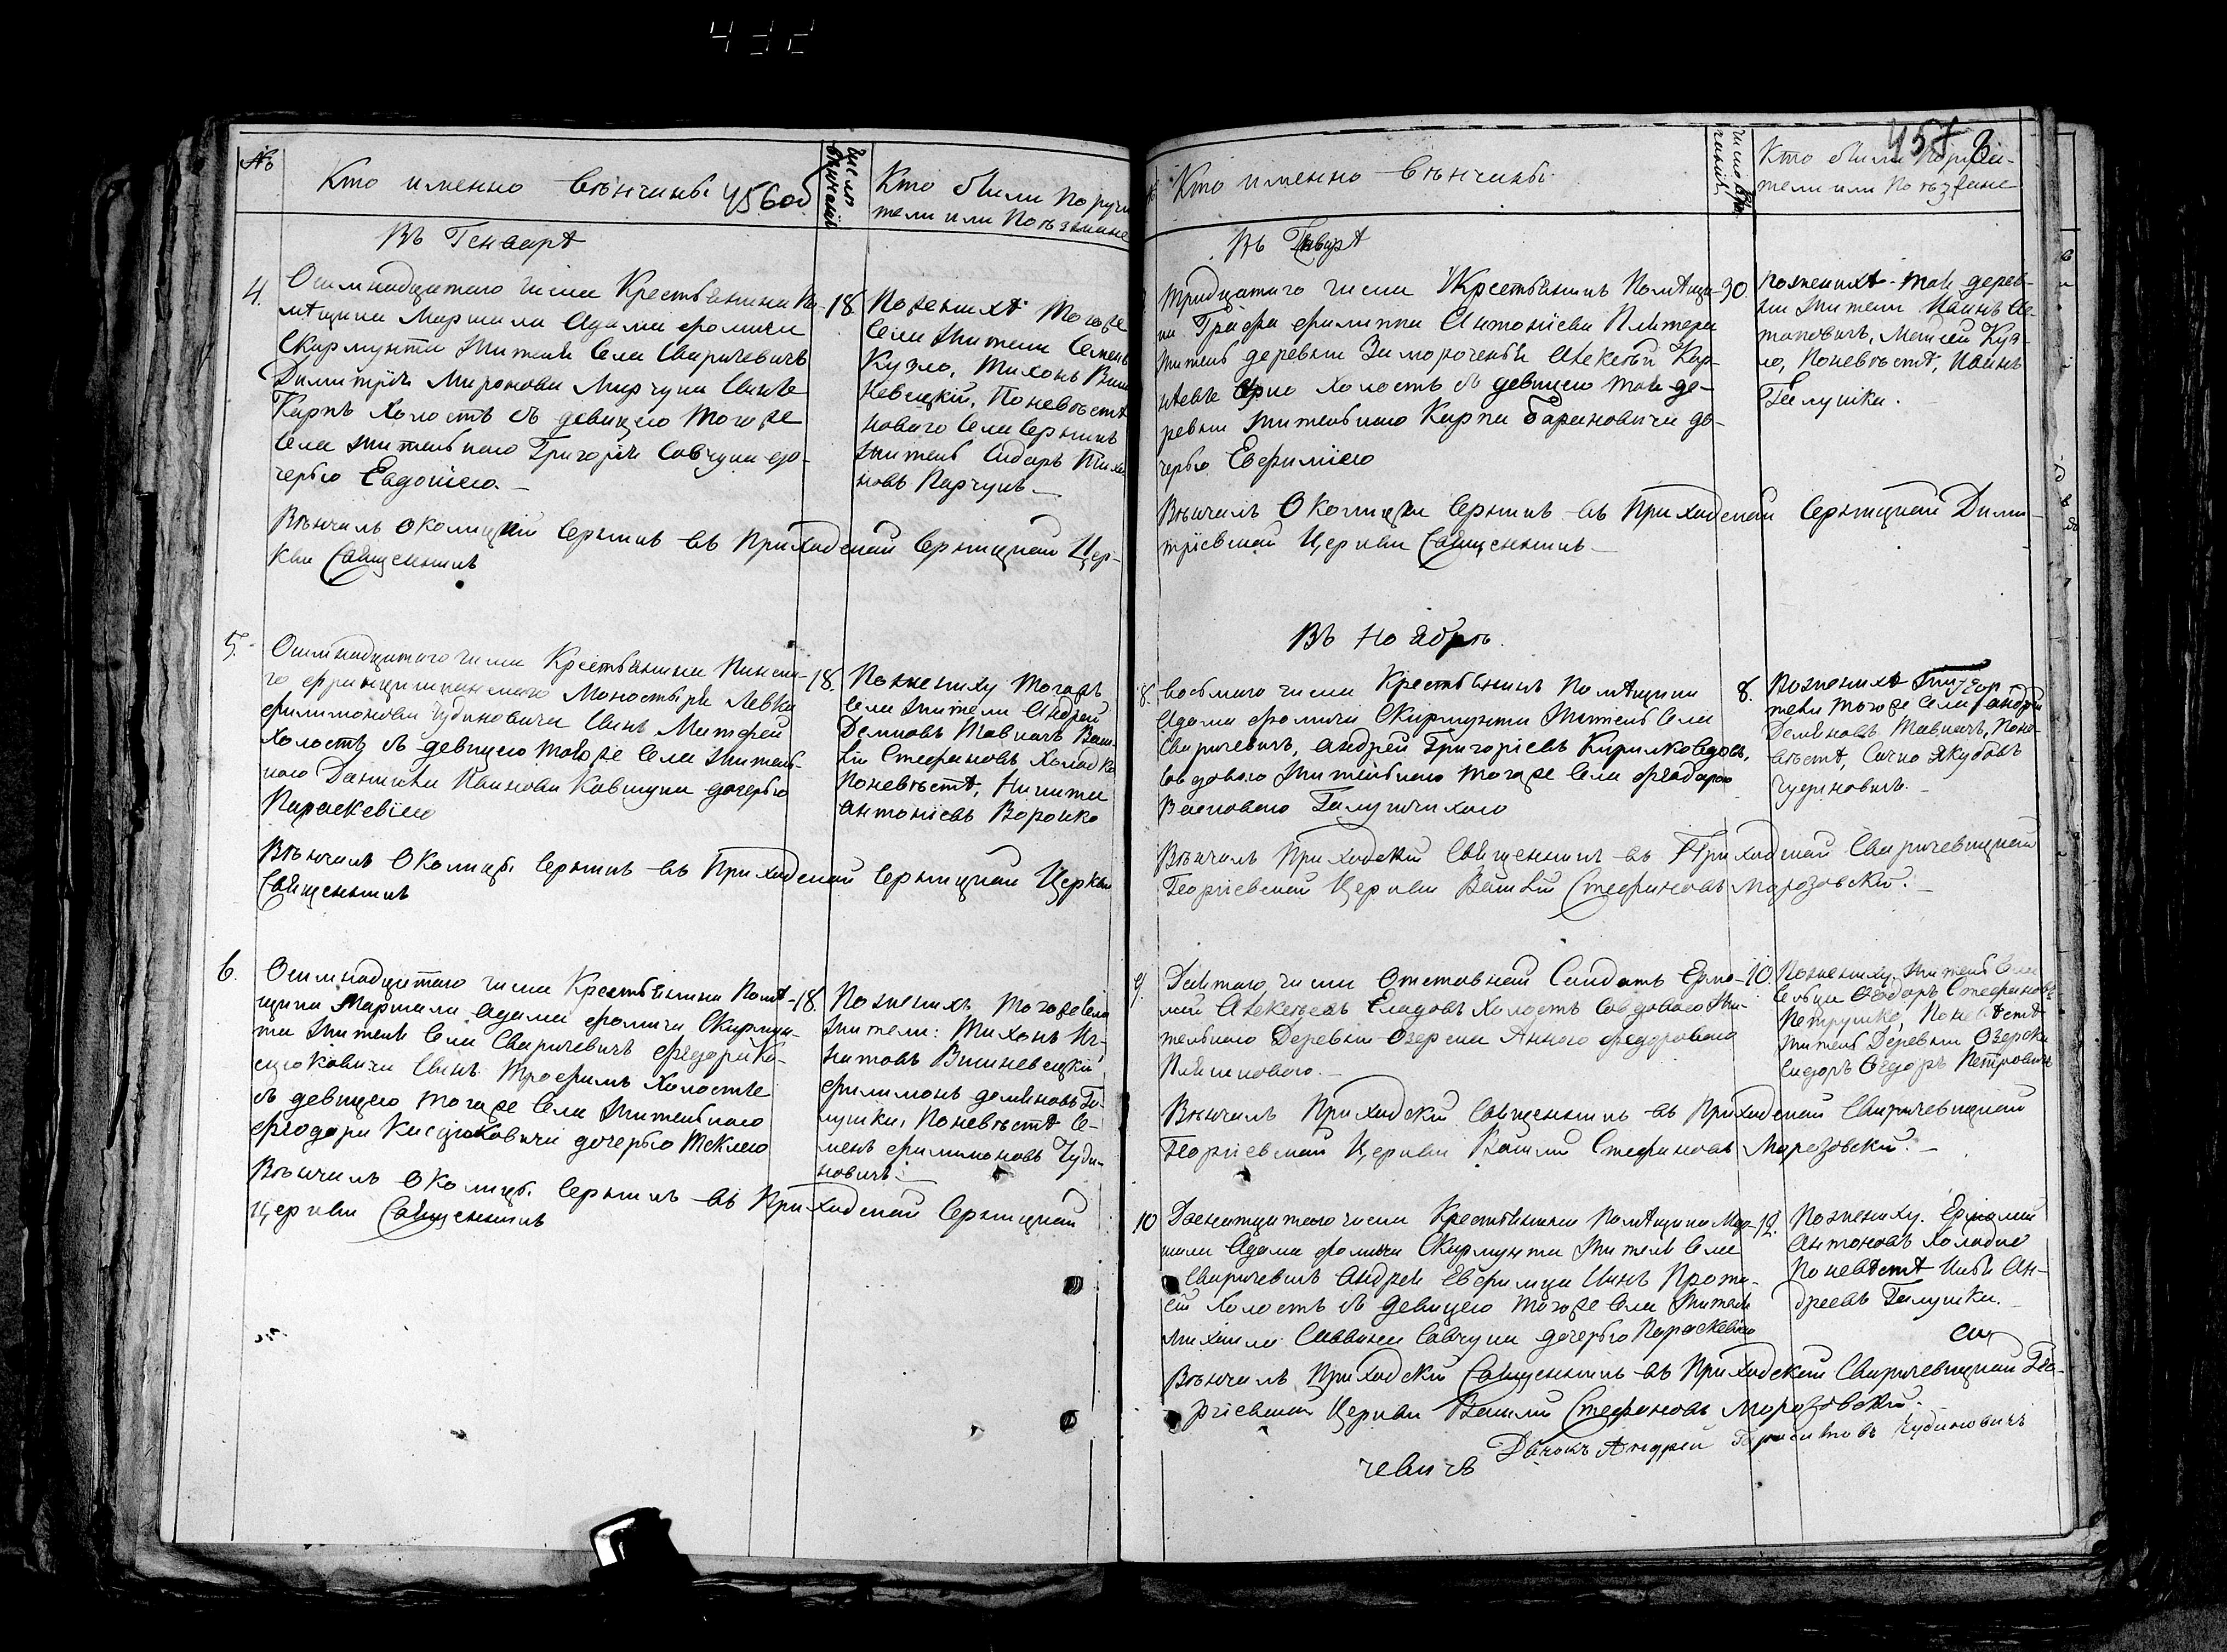 №
Кто именно венчаны 456об
число венчания
Кто были поручи
тели или Поезжане
Въ Генварѣ
4.
Осимнадцатого числа Крестьянина По-
мѣщика Маршала Адама фомича
Скирмунта Жителя Села Сваричевичъ
Димитрія Миронова Марчука Синъ
Карпъ холостъ съ девицею тогоже
Села жительного Григорія Савчука до-
черью Евдокіею.
18.
По женихѣ Тогоже
Села жители Семенъ
Кузло, Тихонъ Виш
невецкій, По невѣстѣ
нового Села Серникъ
житель Сидоръ Тихо
новъ Парчукъ
Вѣнчалъ Околицы Серникъ въ Приходской Серницкой Цер-
кви Священникъ
5.
Осимнадцатого числа Крестьянина Пинска-
го францишканского Монастыря Левка
филимонова Чудиновича Синъ Матфей
холостъ съ девицею тогоже Села житель-
ного Данила Иванова Ковшука дочерью
Параскевіею
18.
По жениху тогожъ
Села жители Андрей
Демковъ Тавпачъ Васи-
лій Стефановъ Холодко
По невѣстѣ, Никита
Антоніевъ Воронко
Вѣнчалъ Околицы Серникъ въ Приходской Серницкой Церкви
Священникъ
6.
Осимнадцатого числа Крестьянина Помѣ-
щика Маршала Адама фомича Скирмун-
та Жителя Села Сваричевичъ Федора Ки-
сцюковича Синъ Трофимъ Холостъ
съ девицею тогоже Села жительного
Феодора Кисцюковича дочерью Теклею
18.
По женихѣ Тогоже Села
жители: Тихонъ Иг-
натовъ Вишневецкій
филимонъ демяновъ Га-
лушка, По невѣстѣ Се-
менъ филимоновъ Чуди-
новичъ
Вѣнчалъ Околицы Серникъ въ Приходской Серницкой
Церкви Священникъ
Кто именно вѣнчаны
Кто были Поручи-
тели или Поѣзжане
457
Въ Генварѣ
Тридцатого числа Крестьянинъ Помѣщи-
ка Графа филиппа Антоніева Плятера
Житель деревни Заморочення Алексѣй Кор-
холостъ съ девицею той де-
ревни жительного Карпа Барановича до-
черью Евфиміею
30.
По женихѣ той дерев-
ни жители Иванъ
Мойсей Куз-
ло, По невѣстѣ, Иванъ
Галушка.
Вѣнчалъ Околицы Серникъ въ Приходской Серницкой Дими-
тріевской Церкви Священникъ
Въ Ноябрѣ.
8.
восьмого числа Крестьянинъ Помѣщика
Адама фомича Скирмунта Житель Села
Сваричевичъ, Андрей Григоріевъ Кирилко вдовъ,
со вдовою Жительною тогоже Села феодорою
Галушчихою
8.
По женихѣ
тели тогоже Села Андрей
Демяновъ Тавпачъ, По не-
вѣстѣ, Якубовъ
Вѣнчалъ Приходскій Священникъ въ Приходской Сваричевицкой
Георгіевской Церкви Василій Стефановъ Морозовскій.
9.
Десятого числа Отставной Салдатъ Ермо-
лай Алексѣевъ Еладовъ Холостъ со вдовою Жи-
тельною Деревни Озерска Анною Федоровою
10.
По жениху житель Села
Феодоръ Стефановъ
Петрушко, По невѣстѣ
житель Деревни Озерска
Сидоръ Феодоръ Петровичъ
Вѣнчалъ Приходскій Священникъ въ Приходской Сваричевицкой
Георгіевской Церкви Василій Стефановъ Морозовскій.
10
Двенатцатого числа Крестьянина Помѣщика Мар-
шала Адама фомича Скирмунта Жителя Села
Сваричевичъ Андрея Ефимца Синъ Прота-
сій Холостъ съ девицею тогоже Села Жителя
Михаила Саввина Савчука дочерью Параскевіею
12.
По жениху. Ермолай
Антоновъ Холодко
По невѣстѣ Илья Ан-
дреевъ Галушка.
Вѣнчалъ Приходскій Священникъ въ Приходской Сваричевицкой Гео-
ргіевской Церкви Василій Стефановъ Морозовскій.
Дьячокъ Андрей Чудиновичъ
чевичъ